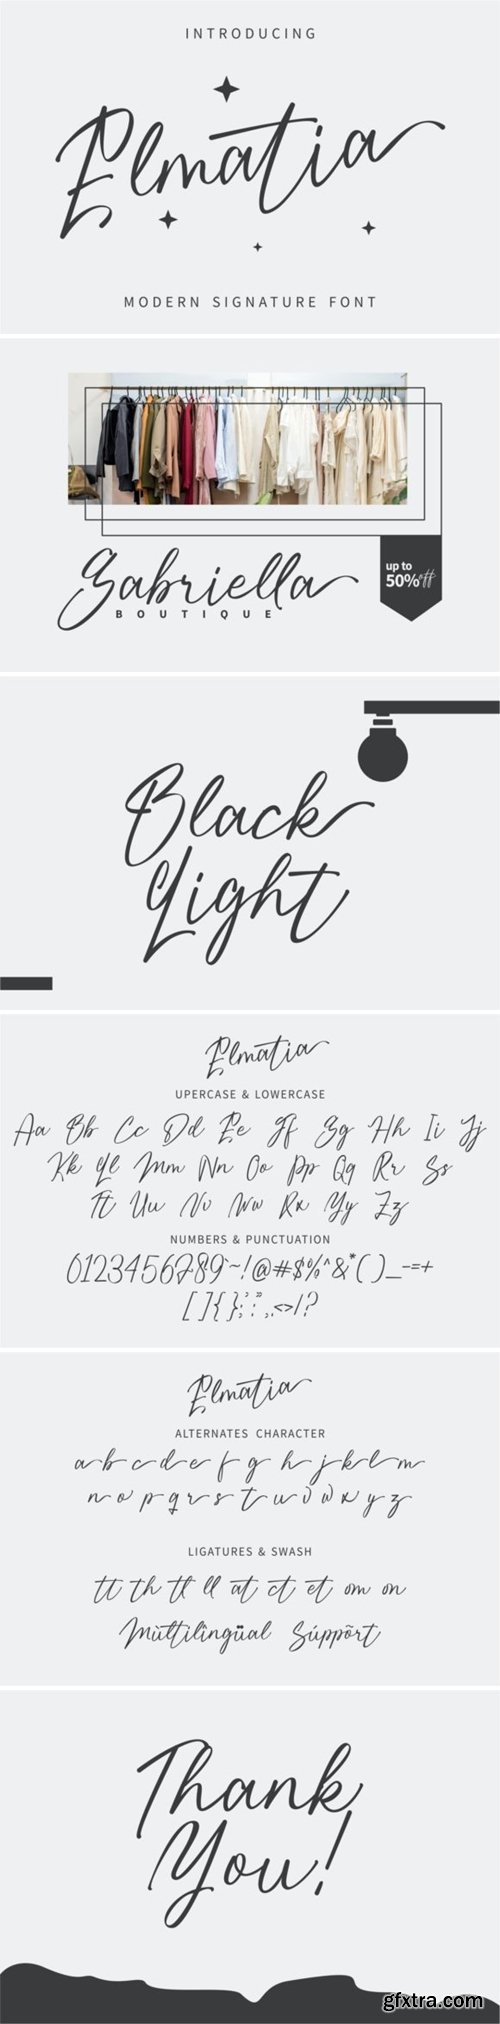 INTRODUCING
Elmatia
MODERN SIGNATURE FONT
up to
50% off
Gabriella
BOUTIQUE
Black
Light
Elmatia
UPERCASE & LOWERCASE
Aa Bb Cc Dd Ee Ff Gg Hh Ii Jj
Kk Ll Mm Nn Oo Pp Qq Rr Ss
Tt Uu Vv Ww Xx Yy Zz
NUMBERS & PUNCTUATION
0123456789`~!@#$%^&*()_-=+
[]{};:'",.<>/?
Elmatia
ALTERNATES CHARACTER
a b c d e f g h i j k l m
n o p q r s t u v w x y z
LIGATURES & SWASH
tt th tl ll at ct et om on
Mùltilîngüal Súppõrt
Thank
You!
gfxtra.com